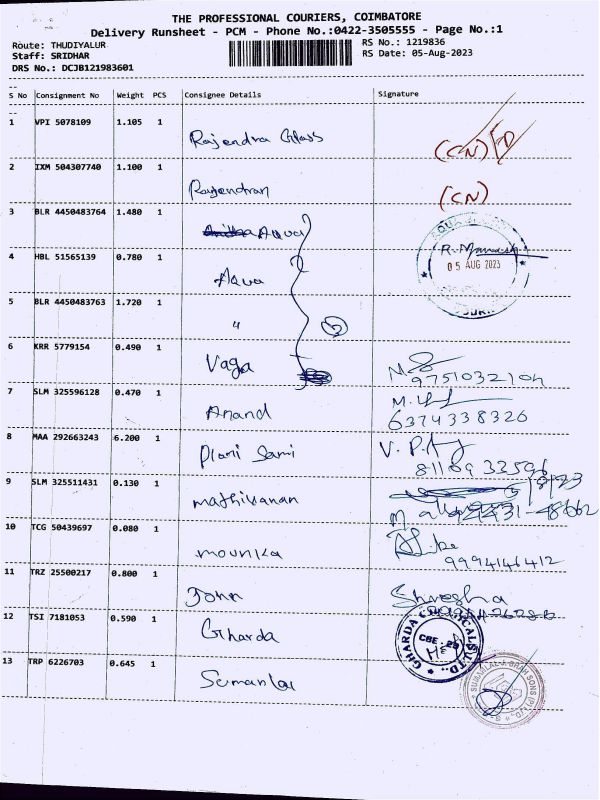 THE PROFESSIONAL COURIERS, COIMBATORE
Delivery Runsheet - PCM - Phone No.:0422-3505555 - Page No.:1
Route: THUDIYALUR
Staff: SRIDHAR
DRS No.: DCJB121983601
RS No.: 1219836
RS Date: 05-Aug-2023
--
S No Consignment No Weight PCS Consignee Details Signature
--
1 VPI 5078109 1.105 1 Rajendra Glass (CN)
2 IXM 504307740 1.100 1 Rajendran (CN)
3 BLR 4450483764 1.480 1 Aqua
R. Manesh
05 AUG 2023
4 HBL 51565139 0.780 1 Aqua
5 BLR 4450483763 1.720 1 " 2
6 KRR 5779154 0.490 1 Vaga
7 SLM 325596128 0.470 1 Anand
6374338326
8 MAA 292663243 6.200 1 Plani Sami V. P.
9 SLM 325511431 0.130 1 mathivanan
10 TCG 50439697 0.080 1 mounika
9994146412
11 TRZ 25500217 0.800 1 John
12 TSI 7181053 0.590 1 Gharda
GHARDA CHEMICALS LTD.
CBE - 29
13 TRP 6226703 0.645 1 Sumanlal